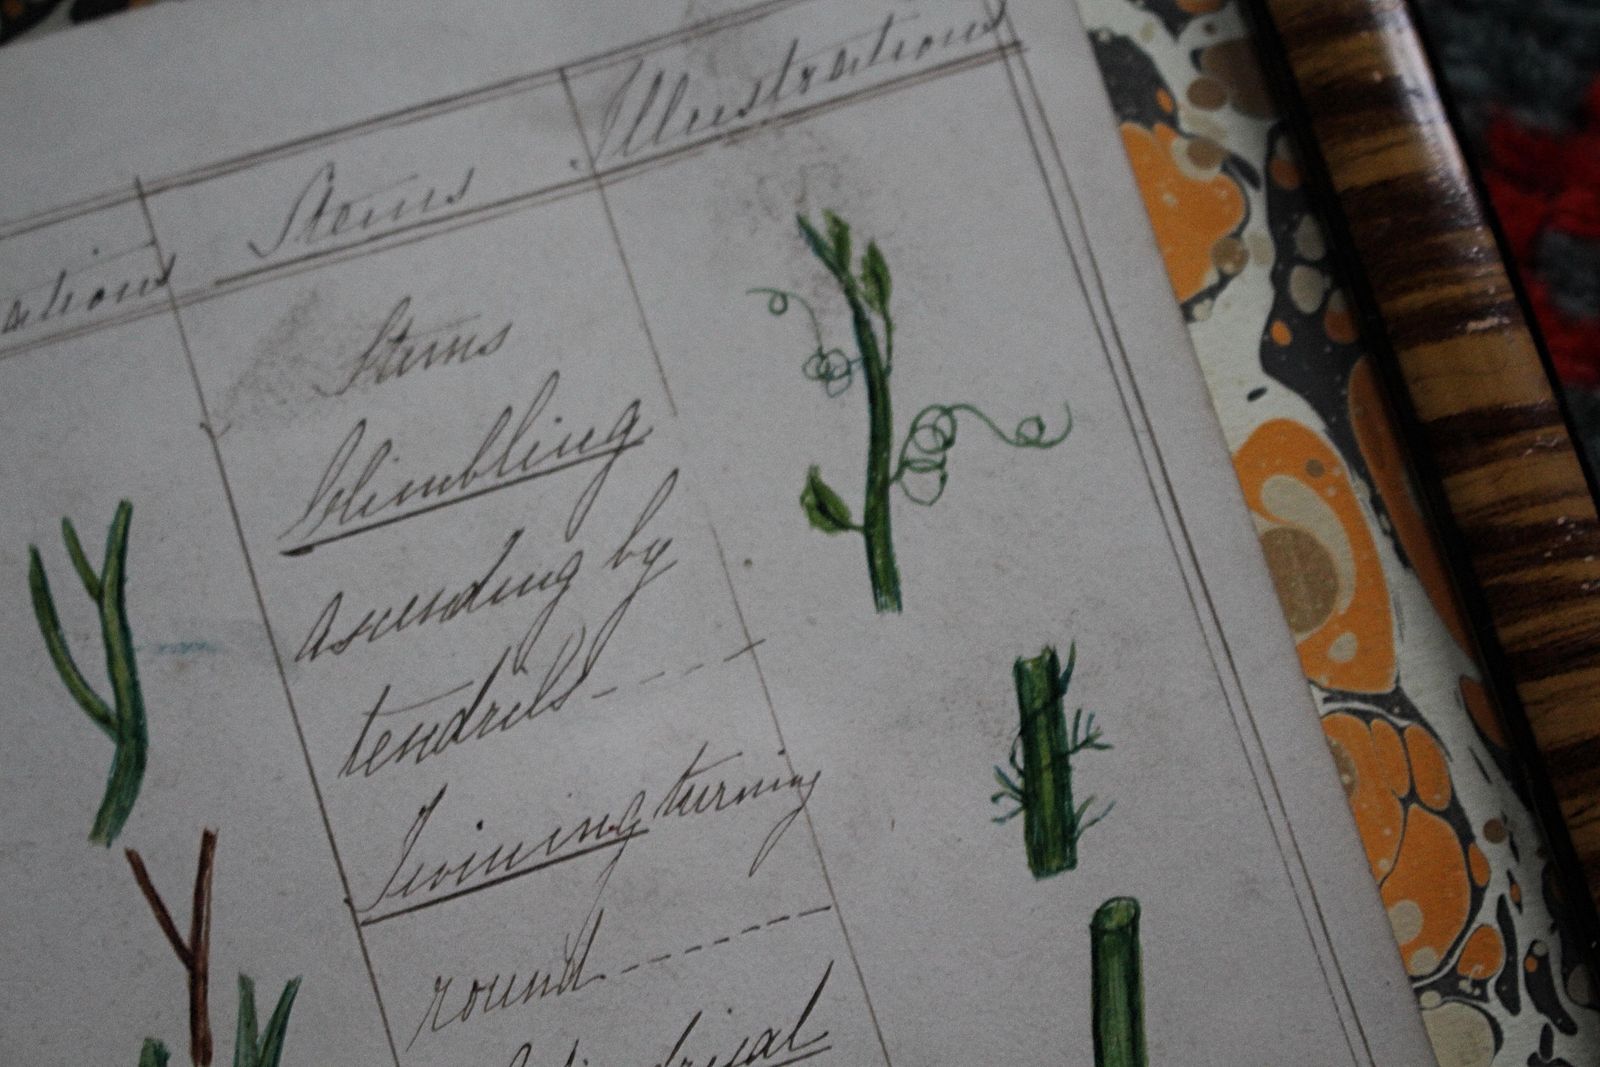 Stems
Illustrations
Stems
Climbling
ascending by
tendrils
Twining turning
round